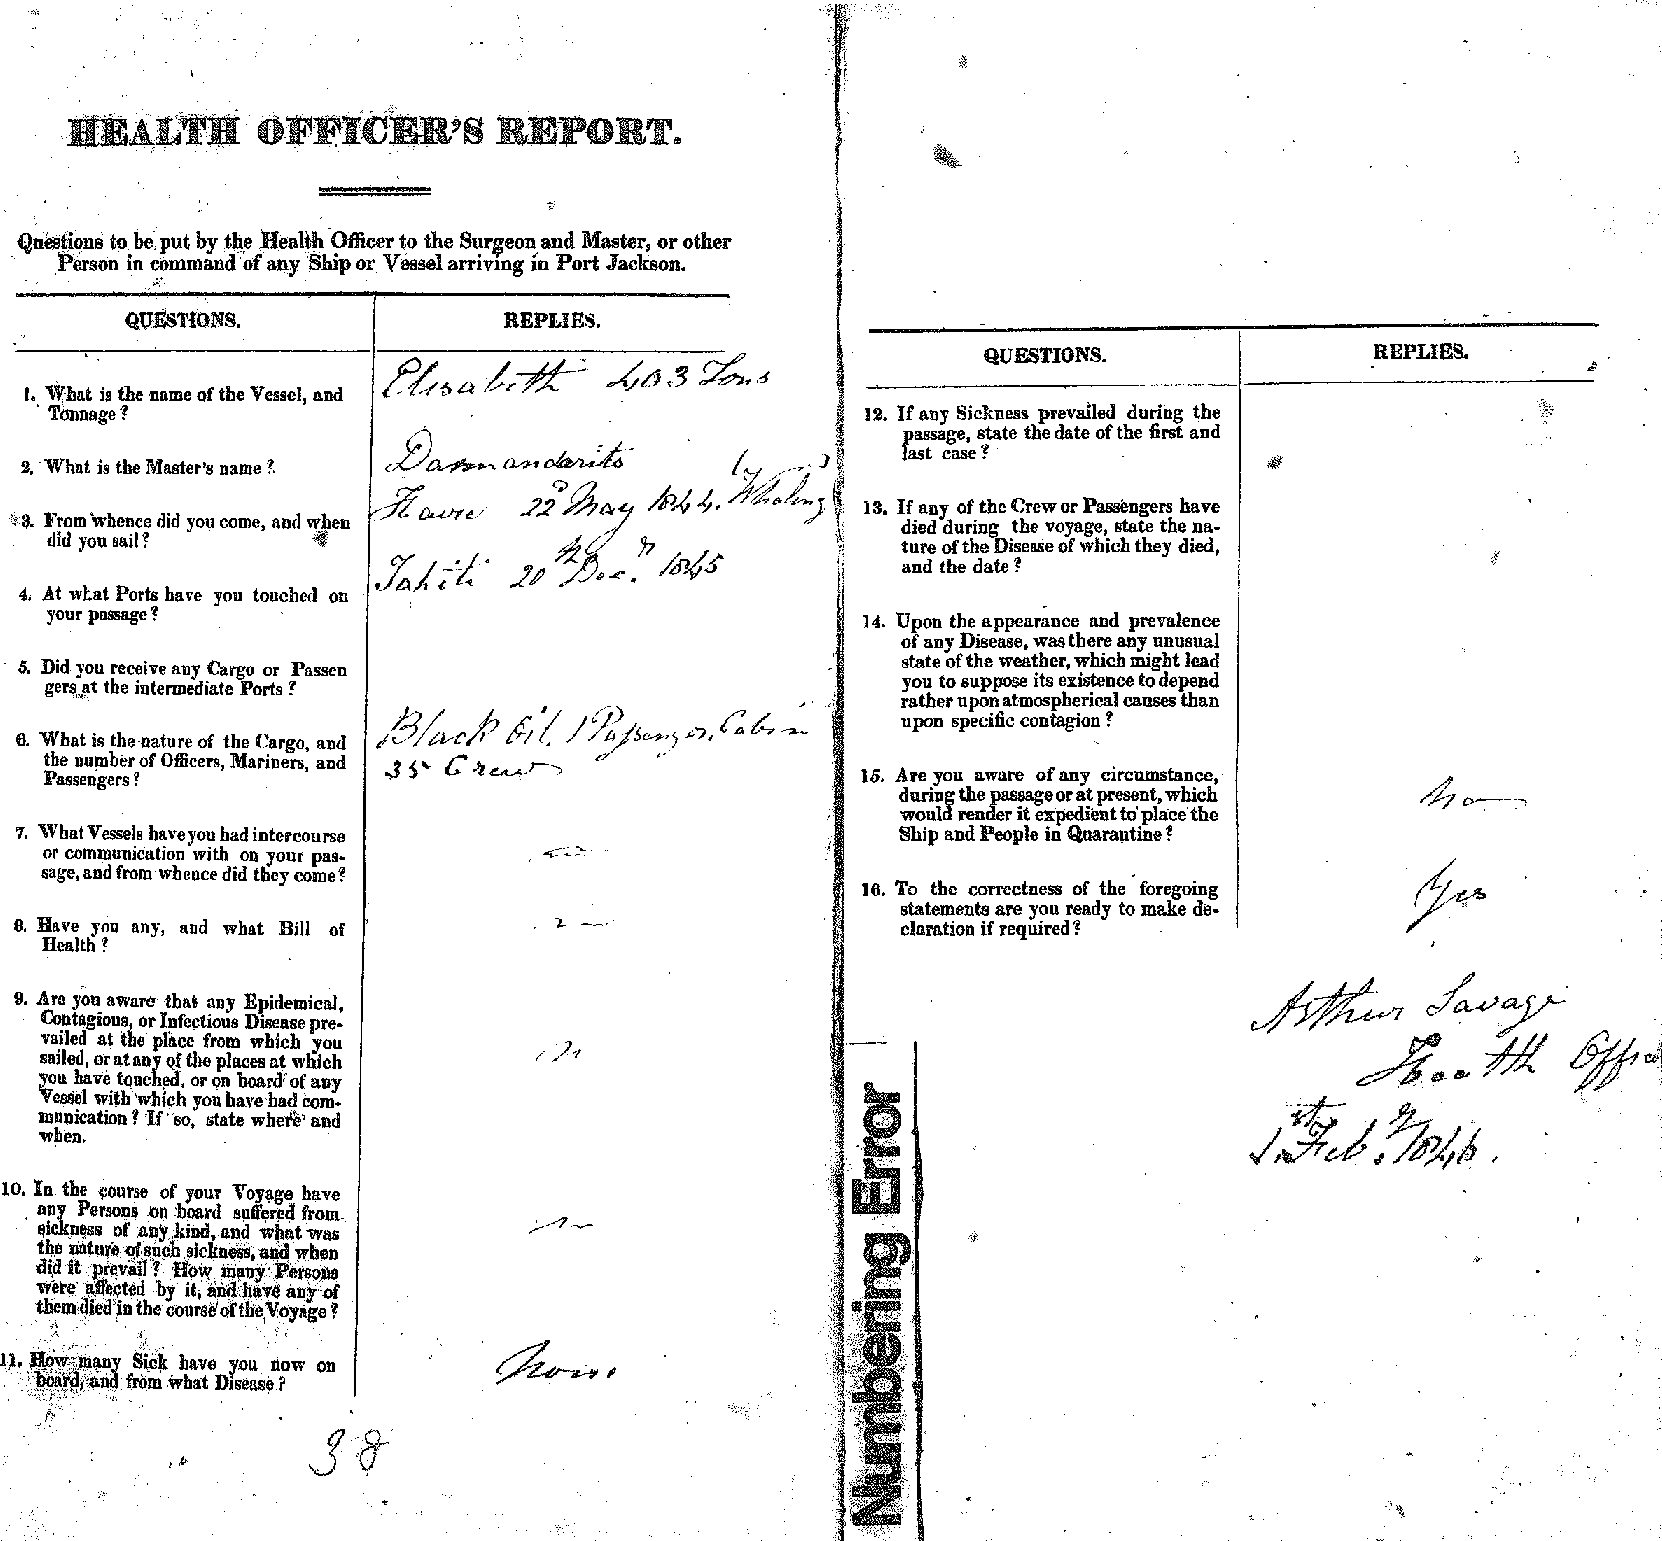 HEALTH OFFICER'S REPORT.
Questions to be put by the Health Officer to the Surgeon and Master, or other
Person in command of any Ship or Vessel arriving in Port Jackson.
QUESTIONS. REPLIES.
1. What is the name of the Vessel, and
Tonnage?
Elisabeth 403 Tons
2. What is the Master's name?
3. From whence did you come, and when
did you sail?
Havre 22d May 1844. (Whaling)
4. At what Ports have you touched on
your passage?
Tahiti 20th Decr. 1845
5. Did you receive any Cargo or Passen
gers at the intermediate Ports?
6. What is the nature of the Cargo, and
the number of Officers, Mariners, and
Passengers?
Black Oil. 1 Passenger. Cabin
35 Crew
7. What Vessels have you had intercourse
or communication with on your pas-
sage, and from whence did they come?
8. Have you any, and what Bill of
Health?
9. Are you aware that any Epidemical,
Contagious, or Infectious Disease pre-
vailed at the place from which you
sailed, or at any of the places at which
you have touched, or on board of any
Vessel with which you have had com-
munication? If so, state where and
when.
10. In the course of your Voyage have
any Persons on board suffered from
sickness of any kind, and what was
the nature of such sickness, and when
did it prevail? How many Persons
were affected by it, and have any of
them died in the course of the Voyage?
11. How many Sick have you now on
board, and from what Disease?
None
38
QUESTIONS. REPLIES.
12. If any Sickness prevailed during the
passage, state the date of the first and
last case?
13. If any of the Crew or Passengers have
died during the voyage, state the na-
ture of the Disease of which they died,
and the date?
14. Upon the appearance and prevalence
of any Disease, was there any unusual
state of the weather, which might lead
you to suppose its existence to depend
rather upon atmospherical causes than
upon specific contagion?
15. Are you aware of any circumstance,
during the passage or at present, which
would render it expedient to place the
Ship and People in Quarantine?
No
16. To the correctness of the foregoing
statements are you ready to make de-
claration if required?
Yes
Arthur Savage
Health Office
1st Feby. 1846.
Numbering Error